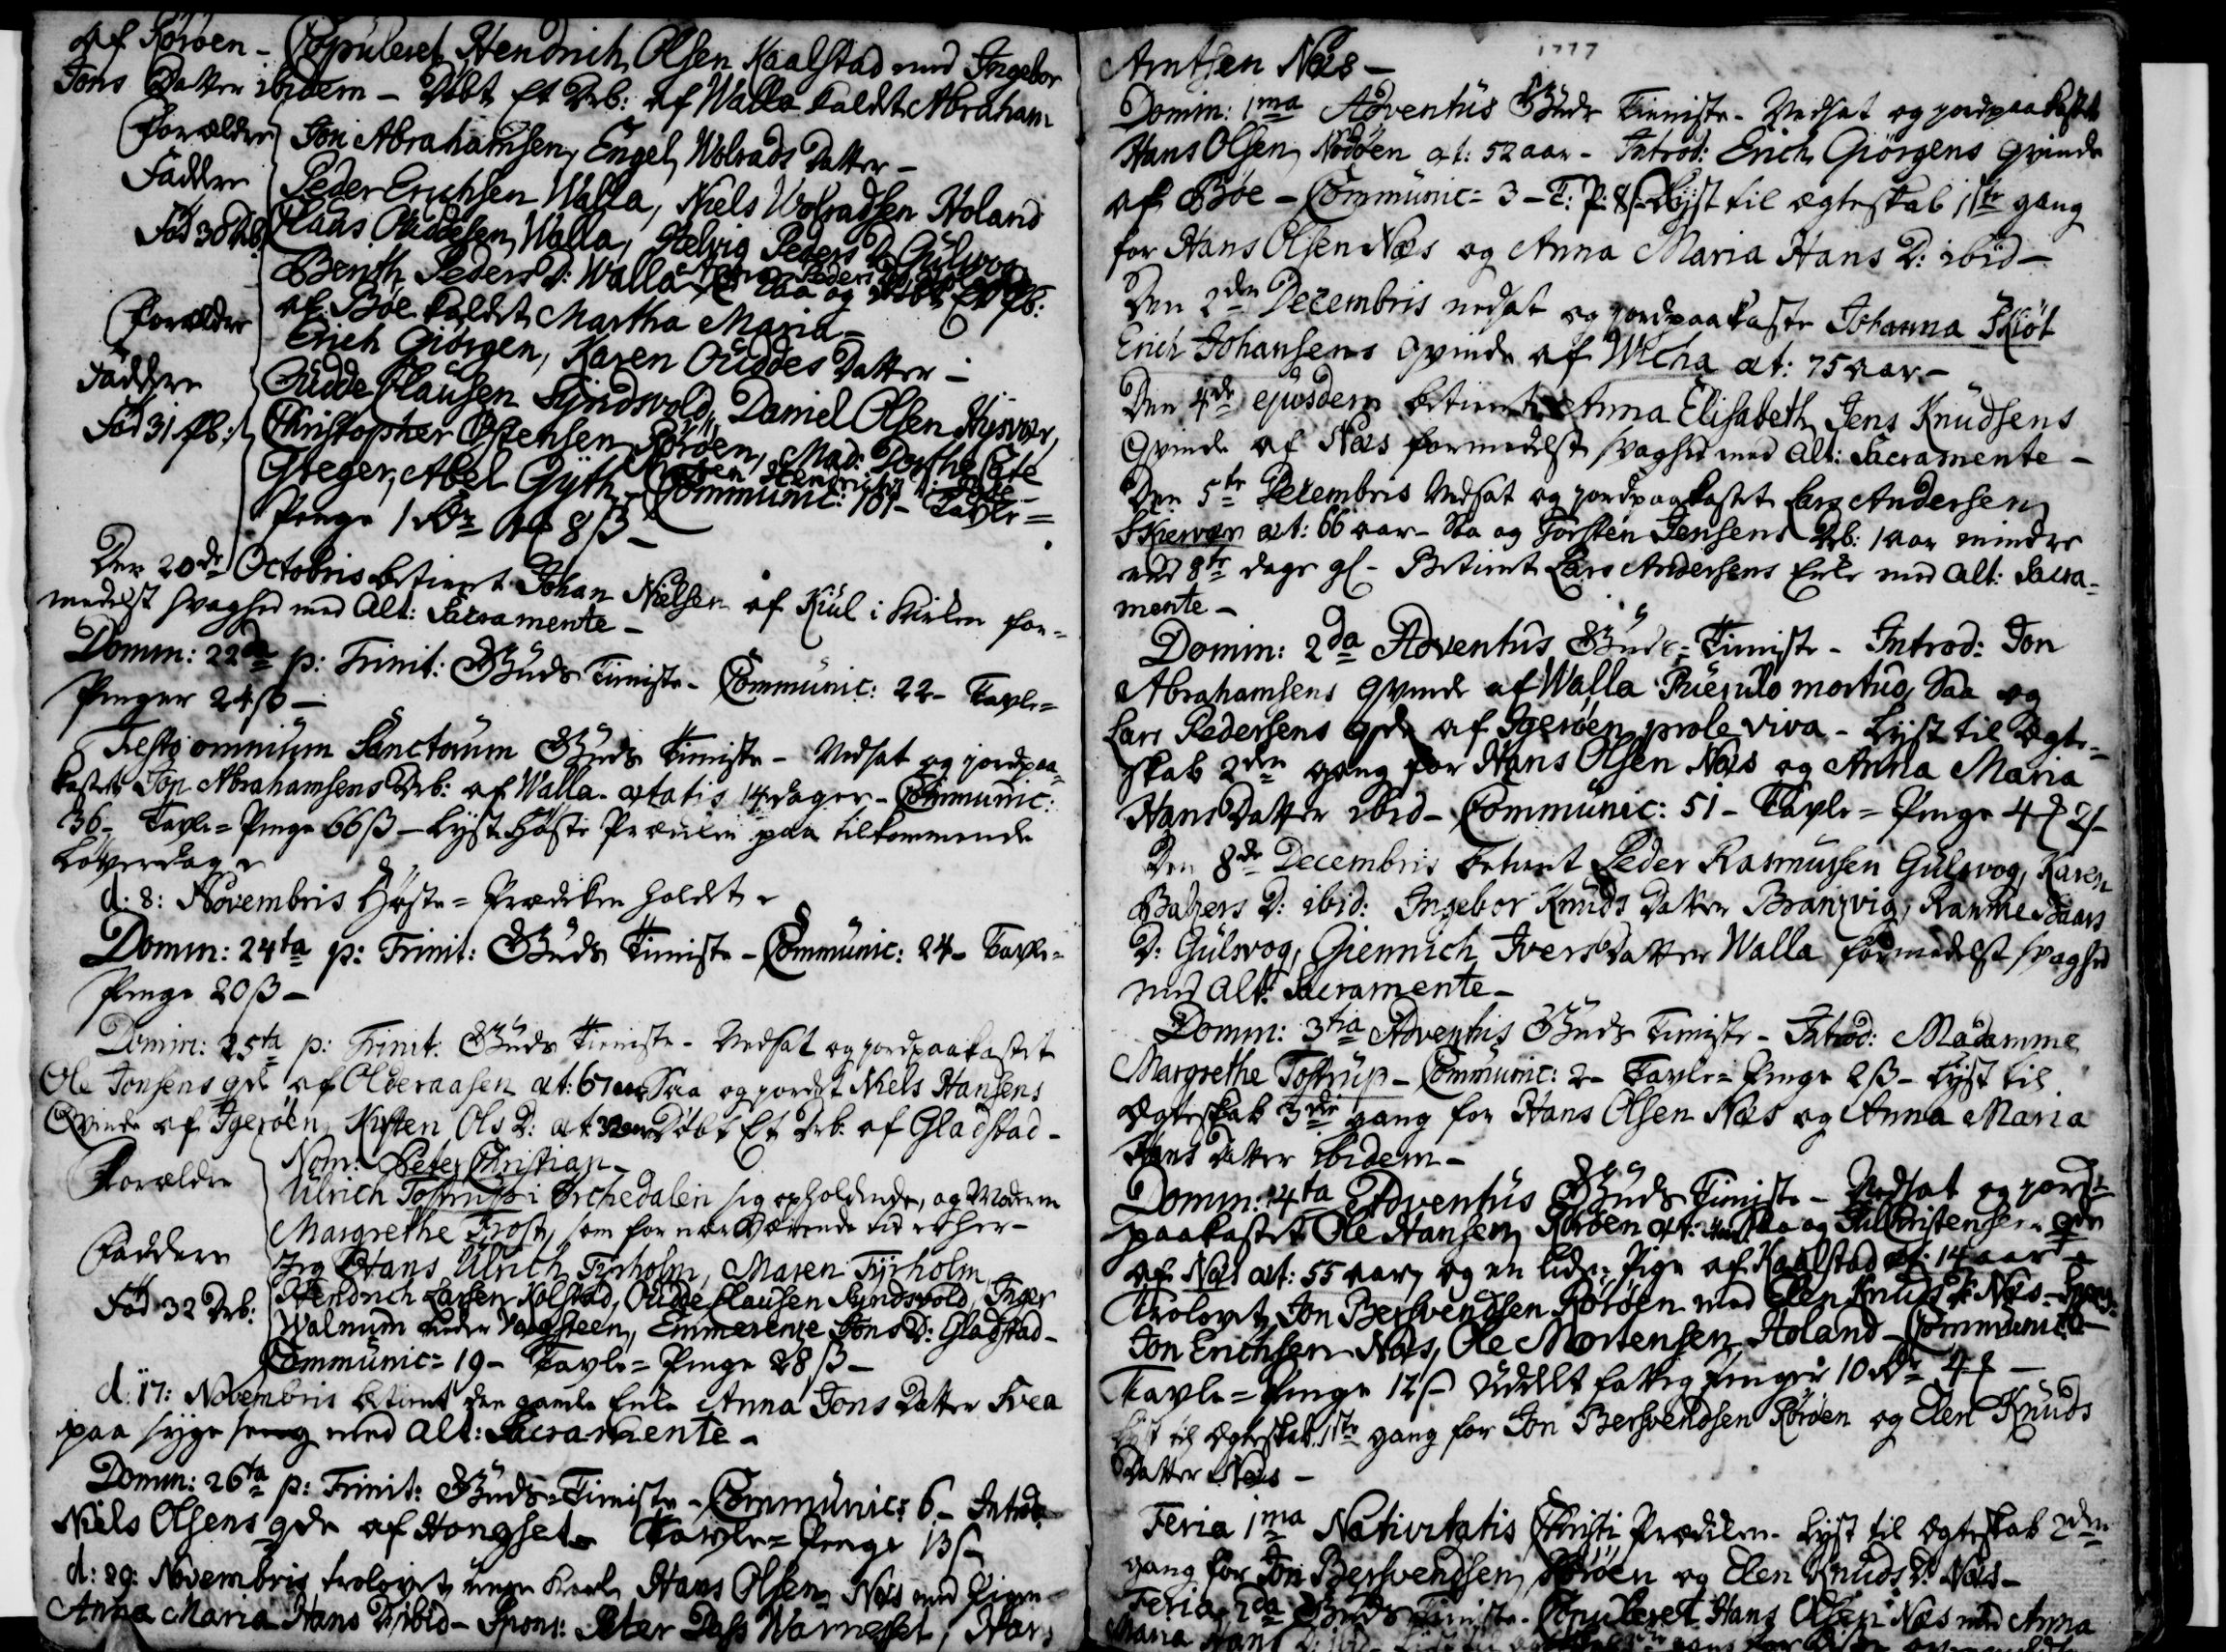 af Röröen - Copuleret Hendrich Olsen Kaalstad med Ingebor
Jons Datter ibidem - Döbt Et Drb: af Walla kaldet Abraham
Forældre Jon Abrahamsen, Engel Wolrads Datter -
Faddere Peder Erichsen Walla, Niels Wolradsen Holand
Föd 30 Drb: Claus Ouddesen Walla, Helvig Peders D: Gulsvog
Benth Peders D: Walla Saa og Döbt Et Pb:
af Böe kaldet Martha Maria -
Forældre Erich Giörgen, Karen Ouddes Datter -
Faddere Oudde Clausen Syndsvold, Daniel Olsen
Föd 31 Pb: Christopher Ostensen Röröen, Mad: Dorthe
Greger, Abel Gyth, Maren Hendrichs D: - Communic: 181 - Tavle=
Penge 1 Rdr 8 ß -
Den 20de Octobris betient Johan Nielsen af Kiul i for=
medelst svaghed med Alt: Sacramente -
Domin: 22da p: Trinit: Guds Tieniste - Communic: 22 - Tavle=
Penger 24 ß -
Festo omnium Sanctorum Guds Tieniste - Nedsat og jordpaa=
kastet Jon Abrahamsens Drb: af Walla. ætatis 14 dager - Communic:
36 - Tavle= Penge 66 ß - Lyst Höste Præcken paa tilkommende
Löverdag -
d: 8: Novembris Höste= Prædiken holdet -
Domin: 24ta p: Trinit: Guds Tieniste - Communic: 24 - Tavle=
Penge 20 ß -
Domin: 25ta p: Trinit: Guds Tieniste - Nedsat og jordpaakastet
Ole Jonsens qde af Olderaasen æt: 67 aar Saa og jordet Niels Hansens
Qvinde af Igeröen, Kirsten Ols D: æt: 32 aar Döbt Et Drb: af Gladstad -
Nom: Peter Christian -
Forældre Ulrich Tostrup i Orchedalen sig opholdende, og Moderen
Margrethe Frost, som for nærværende tid er her -
Faddere Hans Ulrich Tyrholm, Maren Tyrholm,
Föd 32 Drb: Hendrich Larsen Kolstad, Oudde Clausen Syndsvold, Inger
Walnum Emmerense Jons D: Gladstad -
Communic= 19 - Tavle= Penge 28 ß -
d: 17: Novembris betient den gamle Enke Anna Jons Datter Svea
paa syge seng med Alt: Sacramente -
Domin: 26ta p: Trinit: Guds= Tieniste - Communic: 6 - Introd:
Niels Olsens qde af Hongset - Tavle= Penge 13 ß -
d: 29: Novembris trolovet unge Karl Hans Olsen Næs med Pigen
Anna Maria Hans D ibid - Spons: Peter Dass Warneset, Hans
1777
Arntsen Næs -
Domin: 1ma Adventus Guds Tieniste - Nedsat og jordpaakastet
Hans Olsen Nödöen æt: 52 aar - Introd: Erich Giörgens Qvinde
af Böe - Communic= 3 - T: P: 8 ß - Lyst til ægteskab 1ste gang
for Hans Olsen Næs og Anna Maria Hans D: ibid -
Den 2den Decembris nedsat og jordpaakaste Johanna Skiöt
Erich Johansens Qvinde af Wicha æt: 75 aar. -
Den 4de ejusdem betient Anna Elisabeth Jens Knudsens
Qvinde af Næs formedelst svaghed med Alt: Sacramente -
Den 5te Decembris Nedsat og jordpaakastet Lars Andersen
Skiervær æt: 66 aar - Saa og Torsten Jensens Drb: 1 aar mindre
end 8te dage gl - Betient Lars Andersens Enke med Alt: Sacra=
mente -
Domin: 2da Adventus Guds= Tieniste - Introd: Jon
Abrahamsens Qvinde af Walla Puerulo mortuo, Saa og
Lars Pedersens qde af Igeröen prole viva - Lyst til Ægte=
skab 2den gang for Hans Olsen Næs og Anna Maria
Hans Datter ibid - Communic: 51 - Tavle= Penge 4 2 ß -
Den 8de Decembris betient Peder Rasmussen Gulsvog, Karen
Balzers D: ibid: Ingebor Knuds Datter Branzvig, Baars
D: Gulsvog, Giennich Ivers Datter Walla formedelst svaghed
med Alt: Sacramente -
Domin: 3tia Adventus Guds Tieniste - Introd: Madamme
Margrethe Tostrup - Communic: 2 - Tavle= Penge 2 ß - Lyst til
Ægteskab 3die gang for Hans Olsen Næs og Anna Maria
Hans Datter ibidem -
Domin: 4ta Adventus Guds Tieniste - Nedsat og jord=
paakastet Ole Hansen Röröen æt: Saa og Christensens qde
af Næs æt: 55 aar, og en liden Pige af Kaalstad æt: 14 aar -
Trolovet Jon Bersvendsen Röröen med Elen Knuds D: Næs - Spons:
Jon Erichsen Næs, Ole Mortensen Holand - Communic:
Tavle= Penge 12 ß uddelt fattig penger 10 Rdr 4 -
Lyst til Ægteskab 1ste gang for Jon Bersvendsen Röröen og Elen Knuds
Datter Næs -
Feria 1ma Nativitatis Christi Prædiken - Lyst til Ægteskab 2den
gang for Jon Bersvendsen Röröen og Elen Knuds D: Næs -
Feria 2da Guds Tieniste - Copuleret Hans Olsen Næs med Anna
Maria Hans D: ibid -